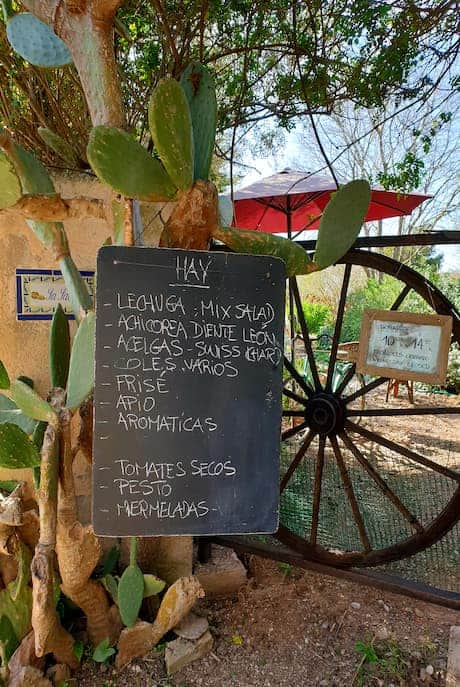 HAY
- LECHUGA , MIX SALAD
- ACHICOREA DIENTE LEÓN
- ACELGAS . SWISS CHARD
- COLES . VARIOS
- FRISÉ
- APIO
- AROMATICAS
-
- TOMATES SECOS
- PESTO
- MERMELADAS -
10 14